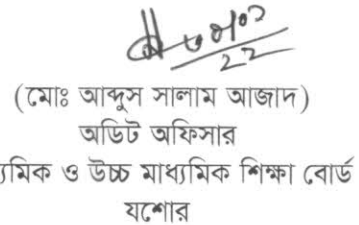 (মোঃ আব্দুস সালাম আজাদ)
অডিট অফিসার
মাধ্যমিক ও উচ্চ মাধ্যমিক শিক্ষা বোর্ড
যশোর